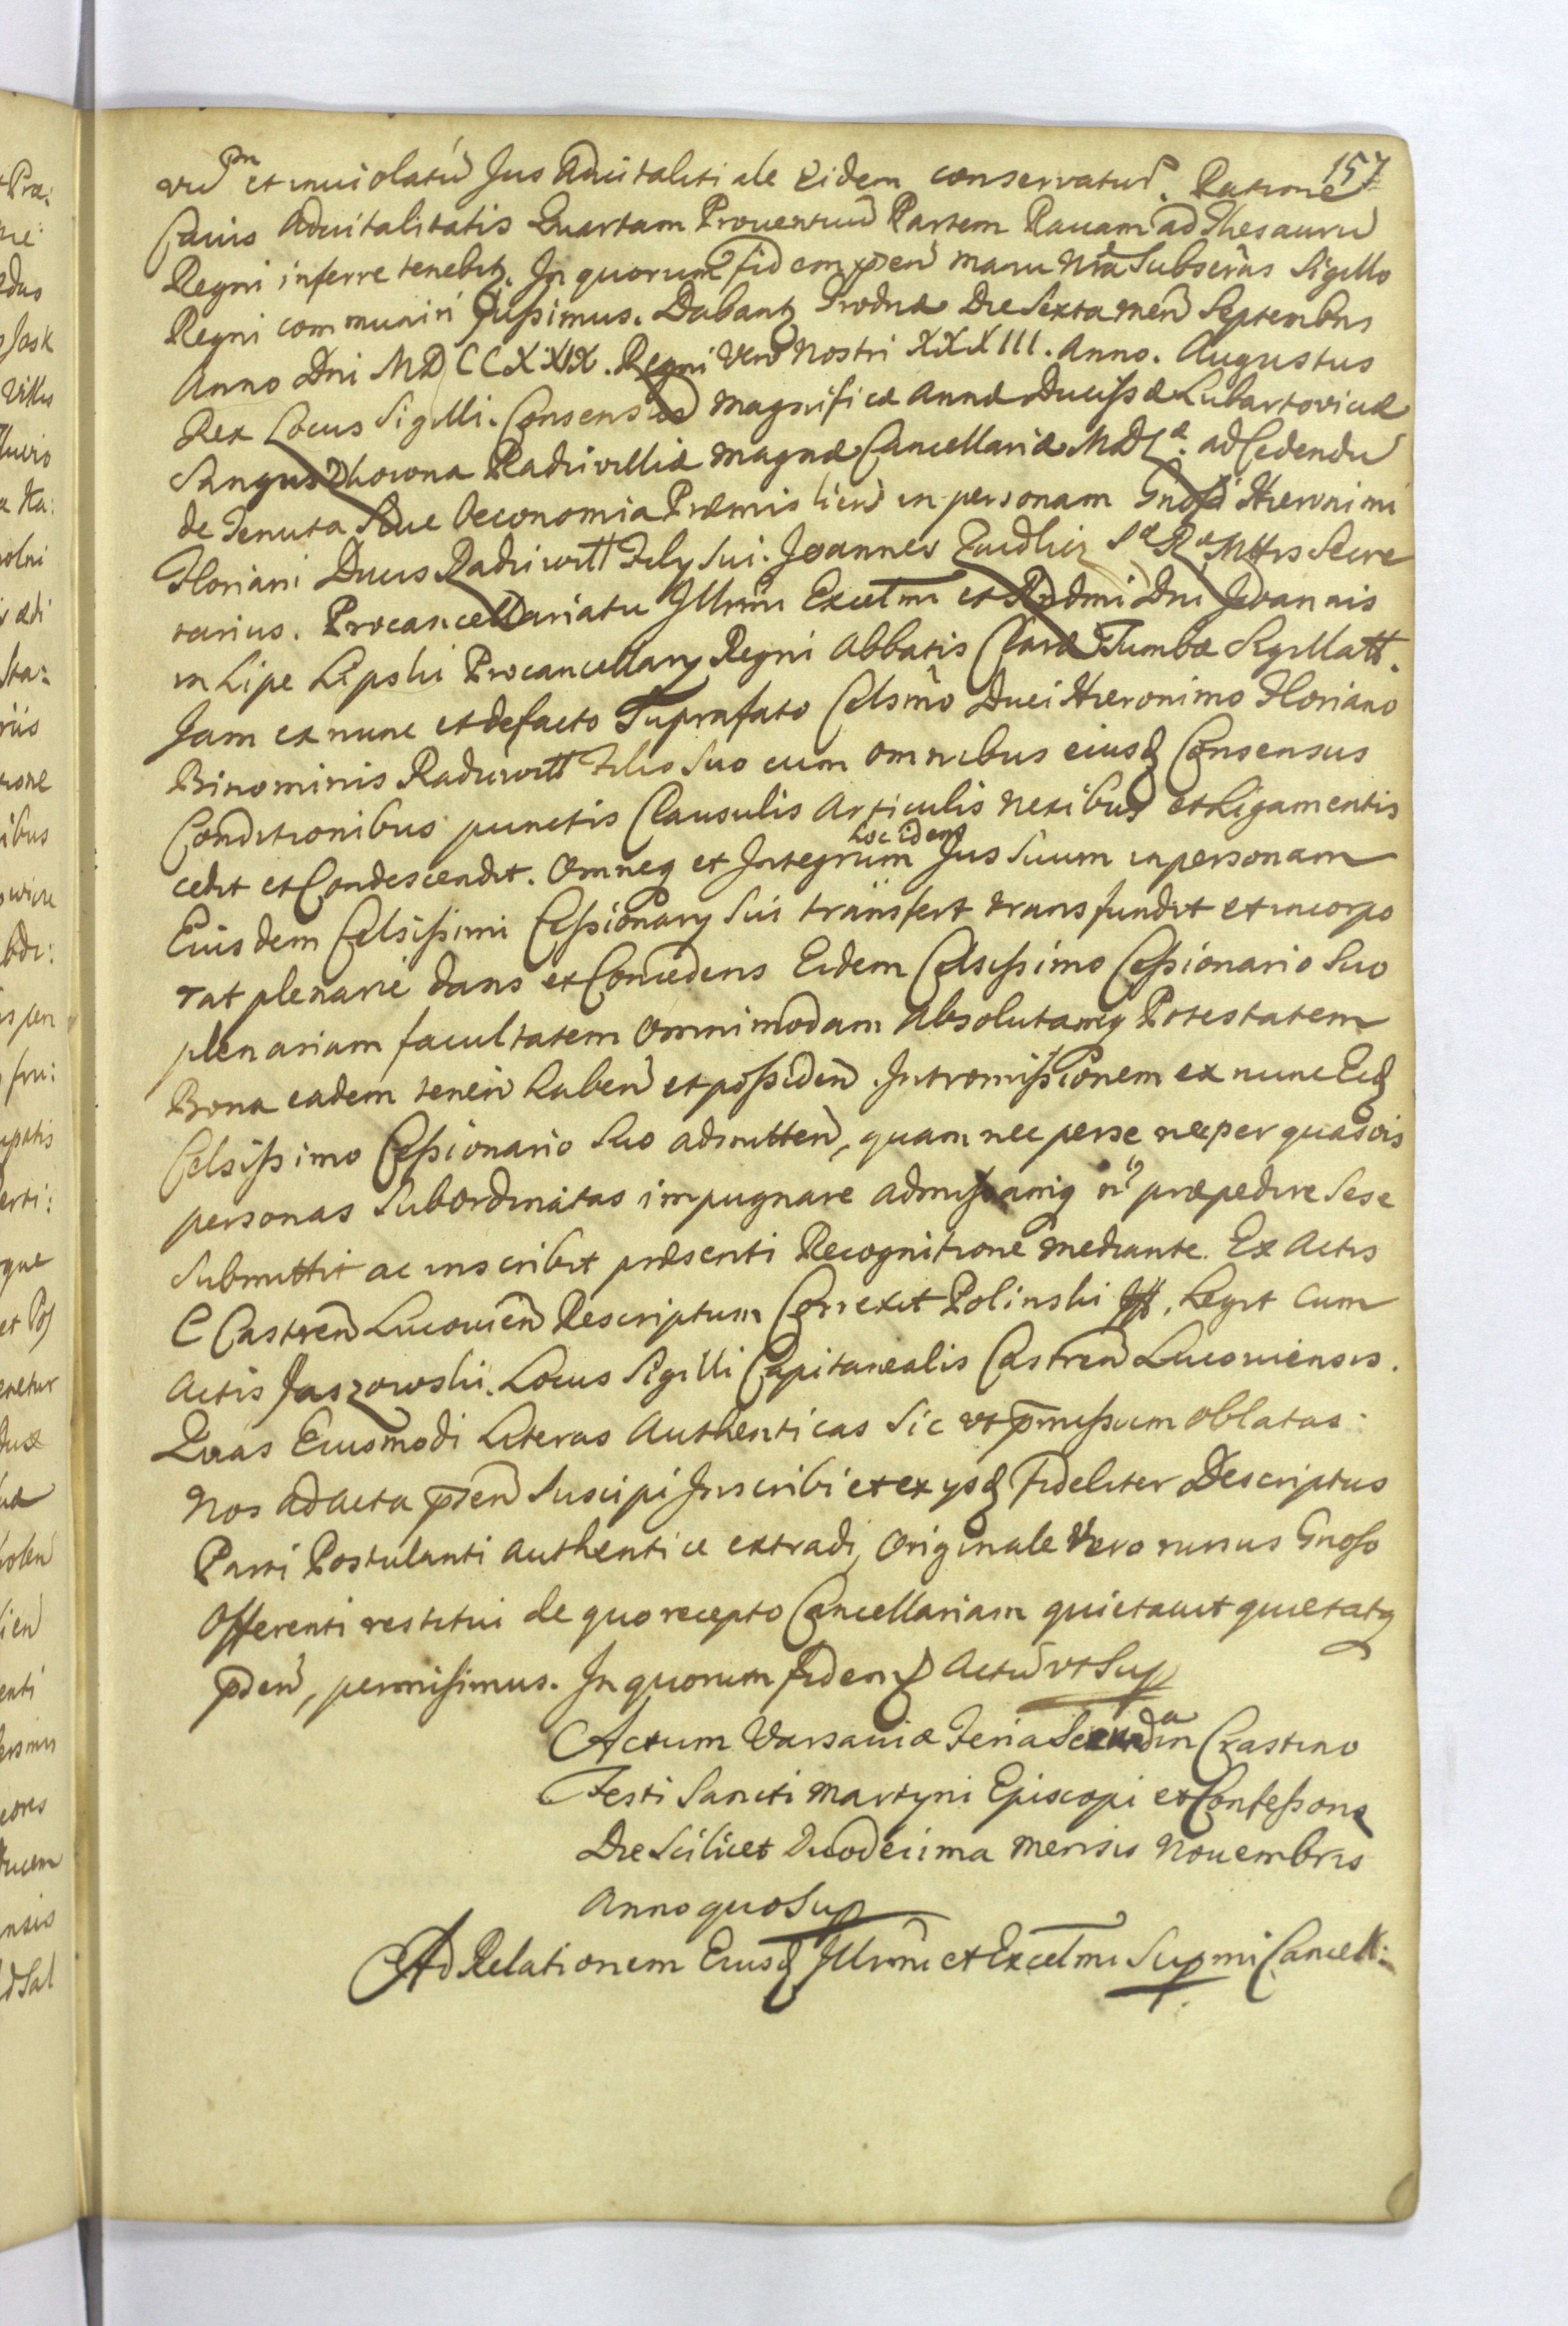 157
vu et inuiolatu Jus Aduitalitiale Eidem conservatur. Ratione
Cuius Aduitalitatis Quartam Prouentuu Partem Rauam ad Thesauru
Regni inferre tenebit. In quorum fidem pñ manu Nra Subscrias Sigillo
Regni communiri Jussimus. Dabant Grodnæ Die Sexta Men Septembris
Anno Dni MDCCXXIX. Regni Vero Nostri XXXIII. Anno. Augustus
Rex Locus Sigilli. Consensus Magnificæ Annæ Ducissæ Lubartoviciæ
Sanguszkowna Radziwilliæ Magnæ Cancellariæ MDL. ad Cedendu
de Tenuta Siue Oeconomia Præmislien in personam Gnosi Hieronimi
Floriani Ducis Radziwill Filÿ Sui. Joannes SæRæMttis Secre
tarius. Procancellariatu Illmi Excellmi et Rndmi Dni Joannis
in Lipe Lipski Procancellarÿ Regni Abbatis Claræ Tumbæ Sigillatt.
Jam ex nunc et defacto Suprafato Celsmo Duci Hieronimo Floriano
Binominis Radziwill Filio Suo cum omnibus eiusd Consensus
Conditionibus punctis Clausulis Articulis Nexibus et Ligamentis
cedit et Condescendit. Omneq et Integrum Hoc idem Jus Suum in personam
Eiusdem Celsissimi Cessionarÿ Sui transfert transfundit et incorpo
rat plenarie dans et Concedens Eidem Celsissimo Cessionario Suo
plenariam facultatem Omnimodam Absolutamq Potestatem
Bona eadem tenen haben et possiden. Intromissionem ex nunc Eid
Celsissimo Cessionario Suo admitten, quam nec per se nec per quasvis
personas Subordinatas impugnare admissamq præpedire Sese
Submittit ac inscribit præsenti Recognitione mediante. Ex Actis
C Castren Lucouien Rescriptum Correxit Polinski. Legit Cum
Actis Jaszowski. Locus Sigilli Capitanealis Castren Lucouiensis.
Quas Eiusmodi Literas Authenticas Sic vt pmissum oblatas
Nos ad acta pñ Suscipi Inscribi et ex ysd fideliter Descriptus
Parti Postulanti Authentice extradi, Originale Vero rursus Gnoso
Offerenti restitui de quo recepto Cancellariam quietauit quietatq
pñ, permisimus. In quorum fidem Actu vt Sup
Actum Varsauiæ Feria Secunda in Crastino
Festi Sancti Martyni Episcopi et Confessoris
Die Scilicet Duodecima Mensis Nouembris
Anno quo Sup
Ad Relationem Eiusd Illmi et Excellmi Supmi Cancell: